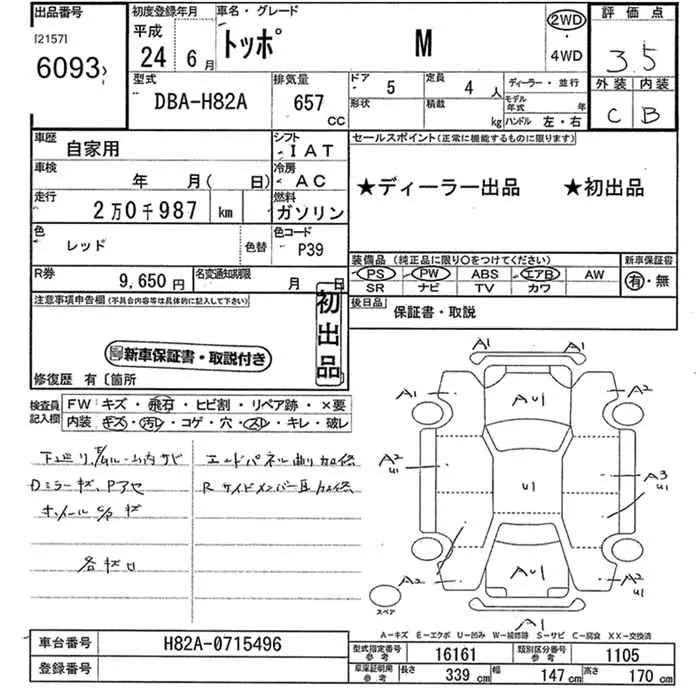 出品番号
[2157]
6093
初度登録年月
平成
24 6月
車名・グレード
トッポ M
2WD
4WD
評価点
3.5
外装 内装
C B
型式
DBA-H82A
排気量
657 CC
ドア 5
定員 4 人
形状
積載 kg
ディーラー・並行
モデル年式 年
ハンドル 左・右
車歴
自家用
シフト
IAT
車検
年 月( 日)
冷房
AC
走行
2万0千987 km
燃料
ガソリン
色
レッド
色替
色コード
P39
R券
9,650円
名変通知期限
月 日
セールスポイント(正常に機能するものに限ります)
★ディーラー出品 ★初出品
装備品 (純正品に限り○をつけてください)
PS PW ABS エアB AW
SR ナビ TV カワ
新車保証書
有・無
後日品
保証書・取説
注意事項申告欄(不具合内容等は具体的に記入して下さい)
初出品
新車保証書・取説付き
修復歴 有〔箇所
検査員記入欄
FW キズ・飛石・ヒビ割・リペア跡・×要
内装 キズ・汚レ・コゲ・穴・スレ・キレ・破レ
エンドパネル曲り加修
Dミラーキズ、Pアセ
各キズ凹
A1 A1
A1 AU1 A2
A2 U1
U1
A3 U1
A2 AU1 A2 U1
A1
スペア
A-キズ E-エクボ U-凹み W-補修跡 S-サビ C-腐食 XX-交換済
車台番号
H82A-0715496
登録番号
型式指定番号 参考
16161
類別区分番号 参考
1105
車庫証明用 参考
長さ 339 cm
幅 147 cm
高さ 170 cm